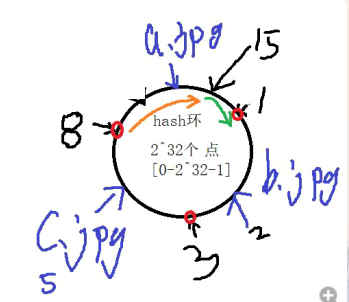 a.jpg
15
1
8
hash环
2^32个 点
[0-2^32-1]
b.jpg
C.jpg
5
3
2